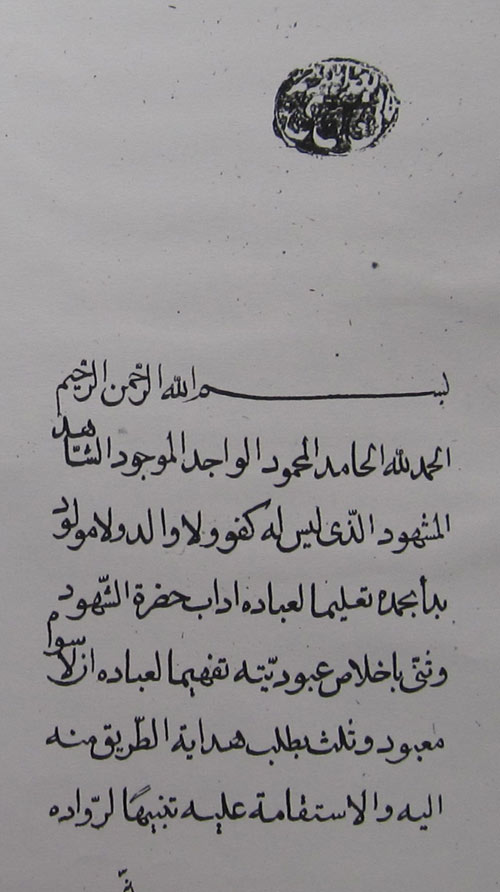 بسم الله الرحمن الرحيم
الحمد لله الحامد المحمود الواجد الموجود الشاهد
المشهود الذى ليس له كفو ولا والد ولا مولود
بدأ بحمده تعليما لعباده اداب حضرة الشهود
وثنى باخلاص عبوديته تفهيما لعباده ان لا سواه
معبود وثلث بطلب هداية الطريق منه
اليه والاستقامة عليه تنبيها لرواده